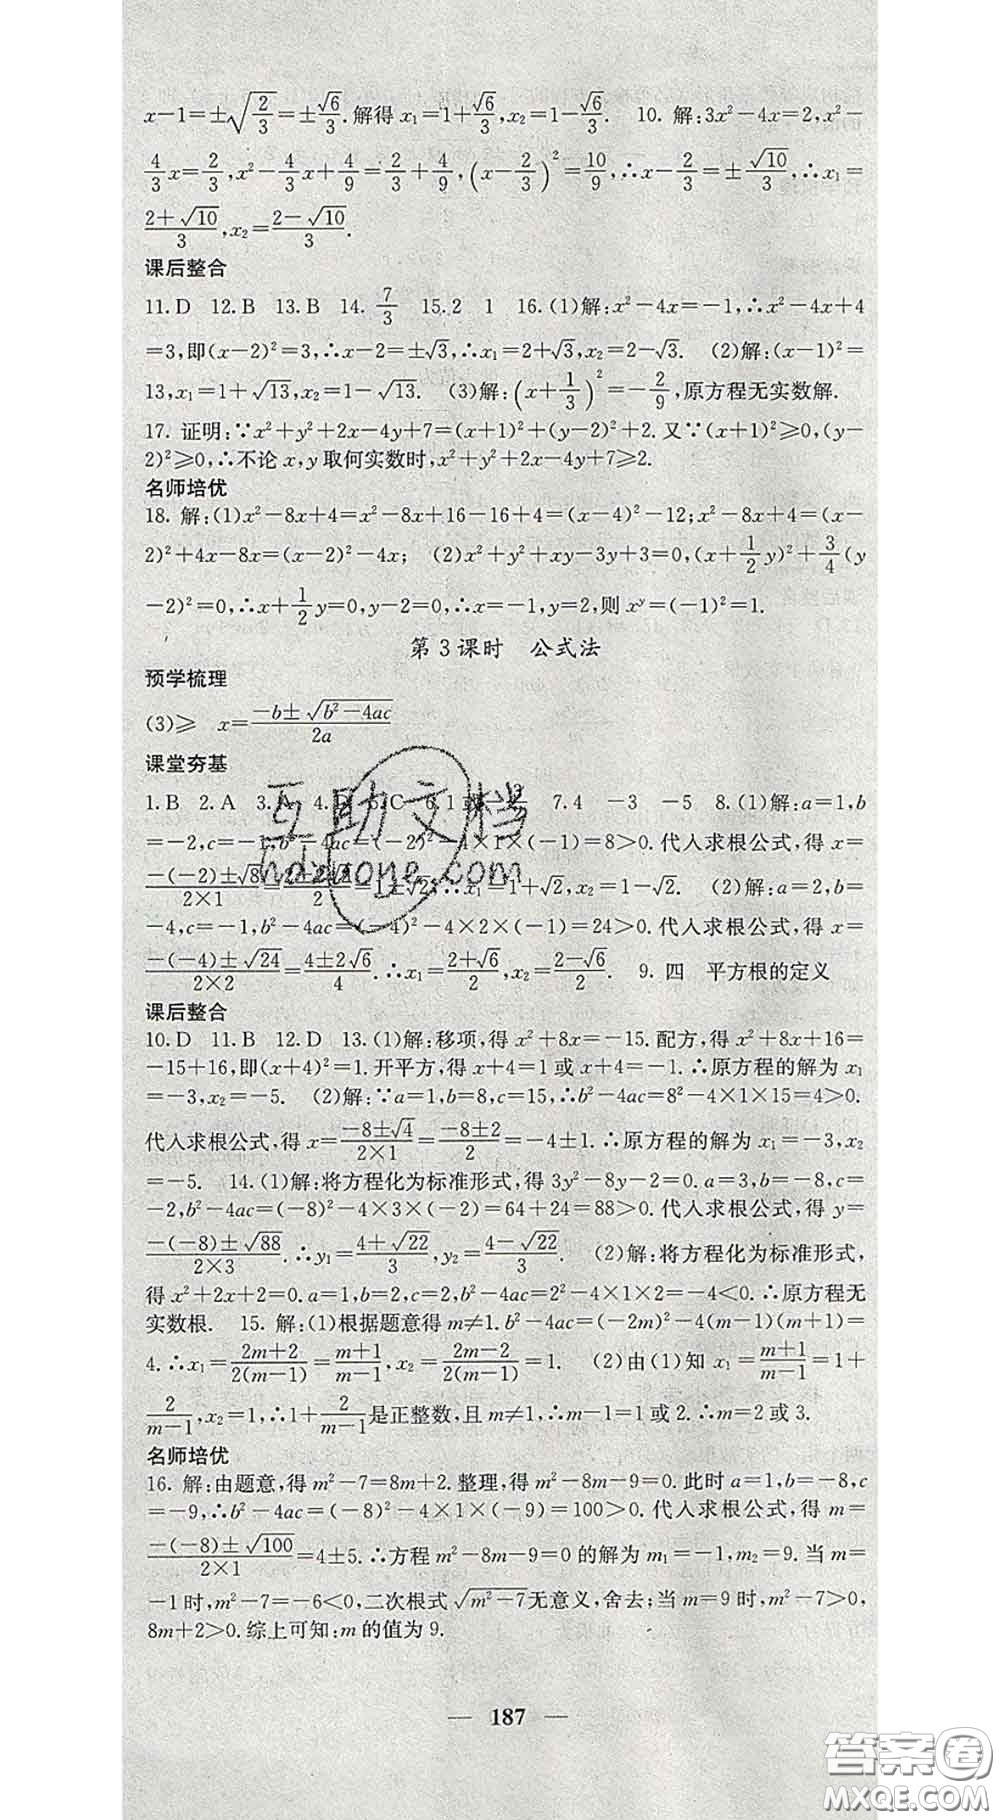 x−1=±√(2/3)=±√6/3.解得 x₁=1+√6/3,x₂=1−√6/3. 10. 解:3x²−4x=2,x²−
4/3x=2/3,x²−4/3x+4/9=2/3+4/9,(x−2/3)²=10/9,∴x−2/3=±√10/3,∴x₁=
(2+√10)/3,x₂=(2−√10)/3.
课后整合
11.D 12.B 13.B 14.7/3 15.2 1 16.(1)解:x²−4x=−1,∴x²−4x+4
=3,即(x−2)²=3,∴x−2=±√3,∴x₁=2+√3,x₂=2−√3. (2)解:(x−1)²=
13,x₁=1+√13,x₂=1−√13. (3)解:(x+1/3)²=−2/9,原方程无实数解.
17. 证明:∵x²+y²+2x−4y+7=(x+1)²+(y−2)²+2.又∵(x+1)²≥0,(y−
2)²≥0,∴不论 x,y 取何实数时,x²+y²+2x−4y+7≥2.
名师培优
18. 解:(1)x²−8x+4=x²−8x+16−16+4=(x−4)²−12;x²−8x+4=(x−
2)²+4x−8x=(x−2)²−4x; (2)x²+y²+xy−3y+3=0,(x+1/2y)²+3/4(y
−2)²=0,∴x+1/2y=0,y−2=0,∴x=−1,y=2,则 xʸ=(−1)²=1.
第 3 课时 公式法
预学梳理
(3)≥ x=(−b±√(b²−4ac))/2a
课堂夯基
1.B 2.A 3.A 4.D 5.C 6.1 7.4 −3 −5 8.(1)解:a=1,b
=−2,c=−1,b²−4ac=(−2)²−4×1×(−1)=8>0.代入求根公式,得 x=
(−(−2)±√8)/(2×1) =1±√2,∴x₁=1+√2,x₂=1−√2. (2)解:a=2,b=
−4,c=−1,b²−4ac=(−4)²−4×2×(−1)=24>0.代入求根公式,得 x=
(−(−4)±√24)/(2×2)=(4±2√6)/4.∴x₁=(2+√6)/2,x₂=(2−√6)/2. 9. 四 平方根的定义
课后整合
10.D 11.B 12.D 13.(1)解:移项,得 x²+8x=−15.配方,得 x²+8x+16=
−15+16,即(x+4)²=1.开平方,得 x+4=1 或 x+4=−1.∴原方程的解为 x₁
=−3,x₂=−5. (2)解:∵a=1,b=8,c=15,∴b²−4ac=8²−4×1×15=4>0.
代入求根公式,得 x=(−8±√4)/(2×1)=(−8±2)/2=−4±1.∴原方程的解为 x₁=−3,x₂
=−5. 14.(1)解:将方程化为标准形式,得 3y²−8y−2=0.a=3,b=−8,c=
−2,b²−4ac=(−8)²−4×3×(−2)=64+24=88>0.代入求根公式,得 y=
(−(−8)±√88)/(2×3).∴y₁=(4+√22)/3,y₂=(4−√22)/3. (2)解:将方程化为标准形式,
得 x²+2x+2=0.a=1,b=2,c=2,b²−4ac=2²−4×1×2=−4<0.∴原方程无
实数根. 15. 解:(1)根据题意得 m≠1.b²−4ac=(−2m)²−4(m−1)(m+1)=
4.∴x₁=(2m+2)/(2(m−1))=(m+1)/(m−1),x₂=(2m−2)/(2(m−1))=1. (2)由(1)知 x₁=(m+1)/(m−1)=1+
2/(m−1),x₂=1,∴1+2/(m−1)是正整数,且 m≠1,∴m−1=1 或 2.∴m=2 或 3.
名师培优
16. 解:由题意,得 m²−7=8m+2.整理,得 m²−8m−9=0.此时 a=1,b=−8,c
=−9,∴b²−4ac=(−8)²−4×1×(−9)=100>0.代入求根公式,得 m=
(−(−8)±√100)/(2×1)=4±5.∴方程 m²−8m−9=0 的解为 m₁=−1,m₂=9.当 m=
−1 时,m²−7=−6<0,二次根式√(m²−7)无意义,舍去;当 m=9 时,m²−7>0,
8m+2>0.综上可知:m 的值为 9.
— 187 —
互助文档
hdzuone.com
答案圈
MXQE.COM